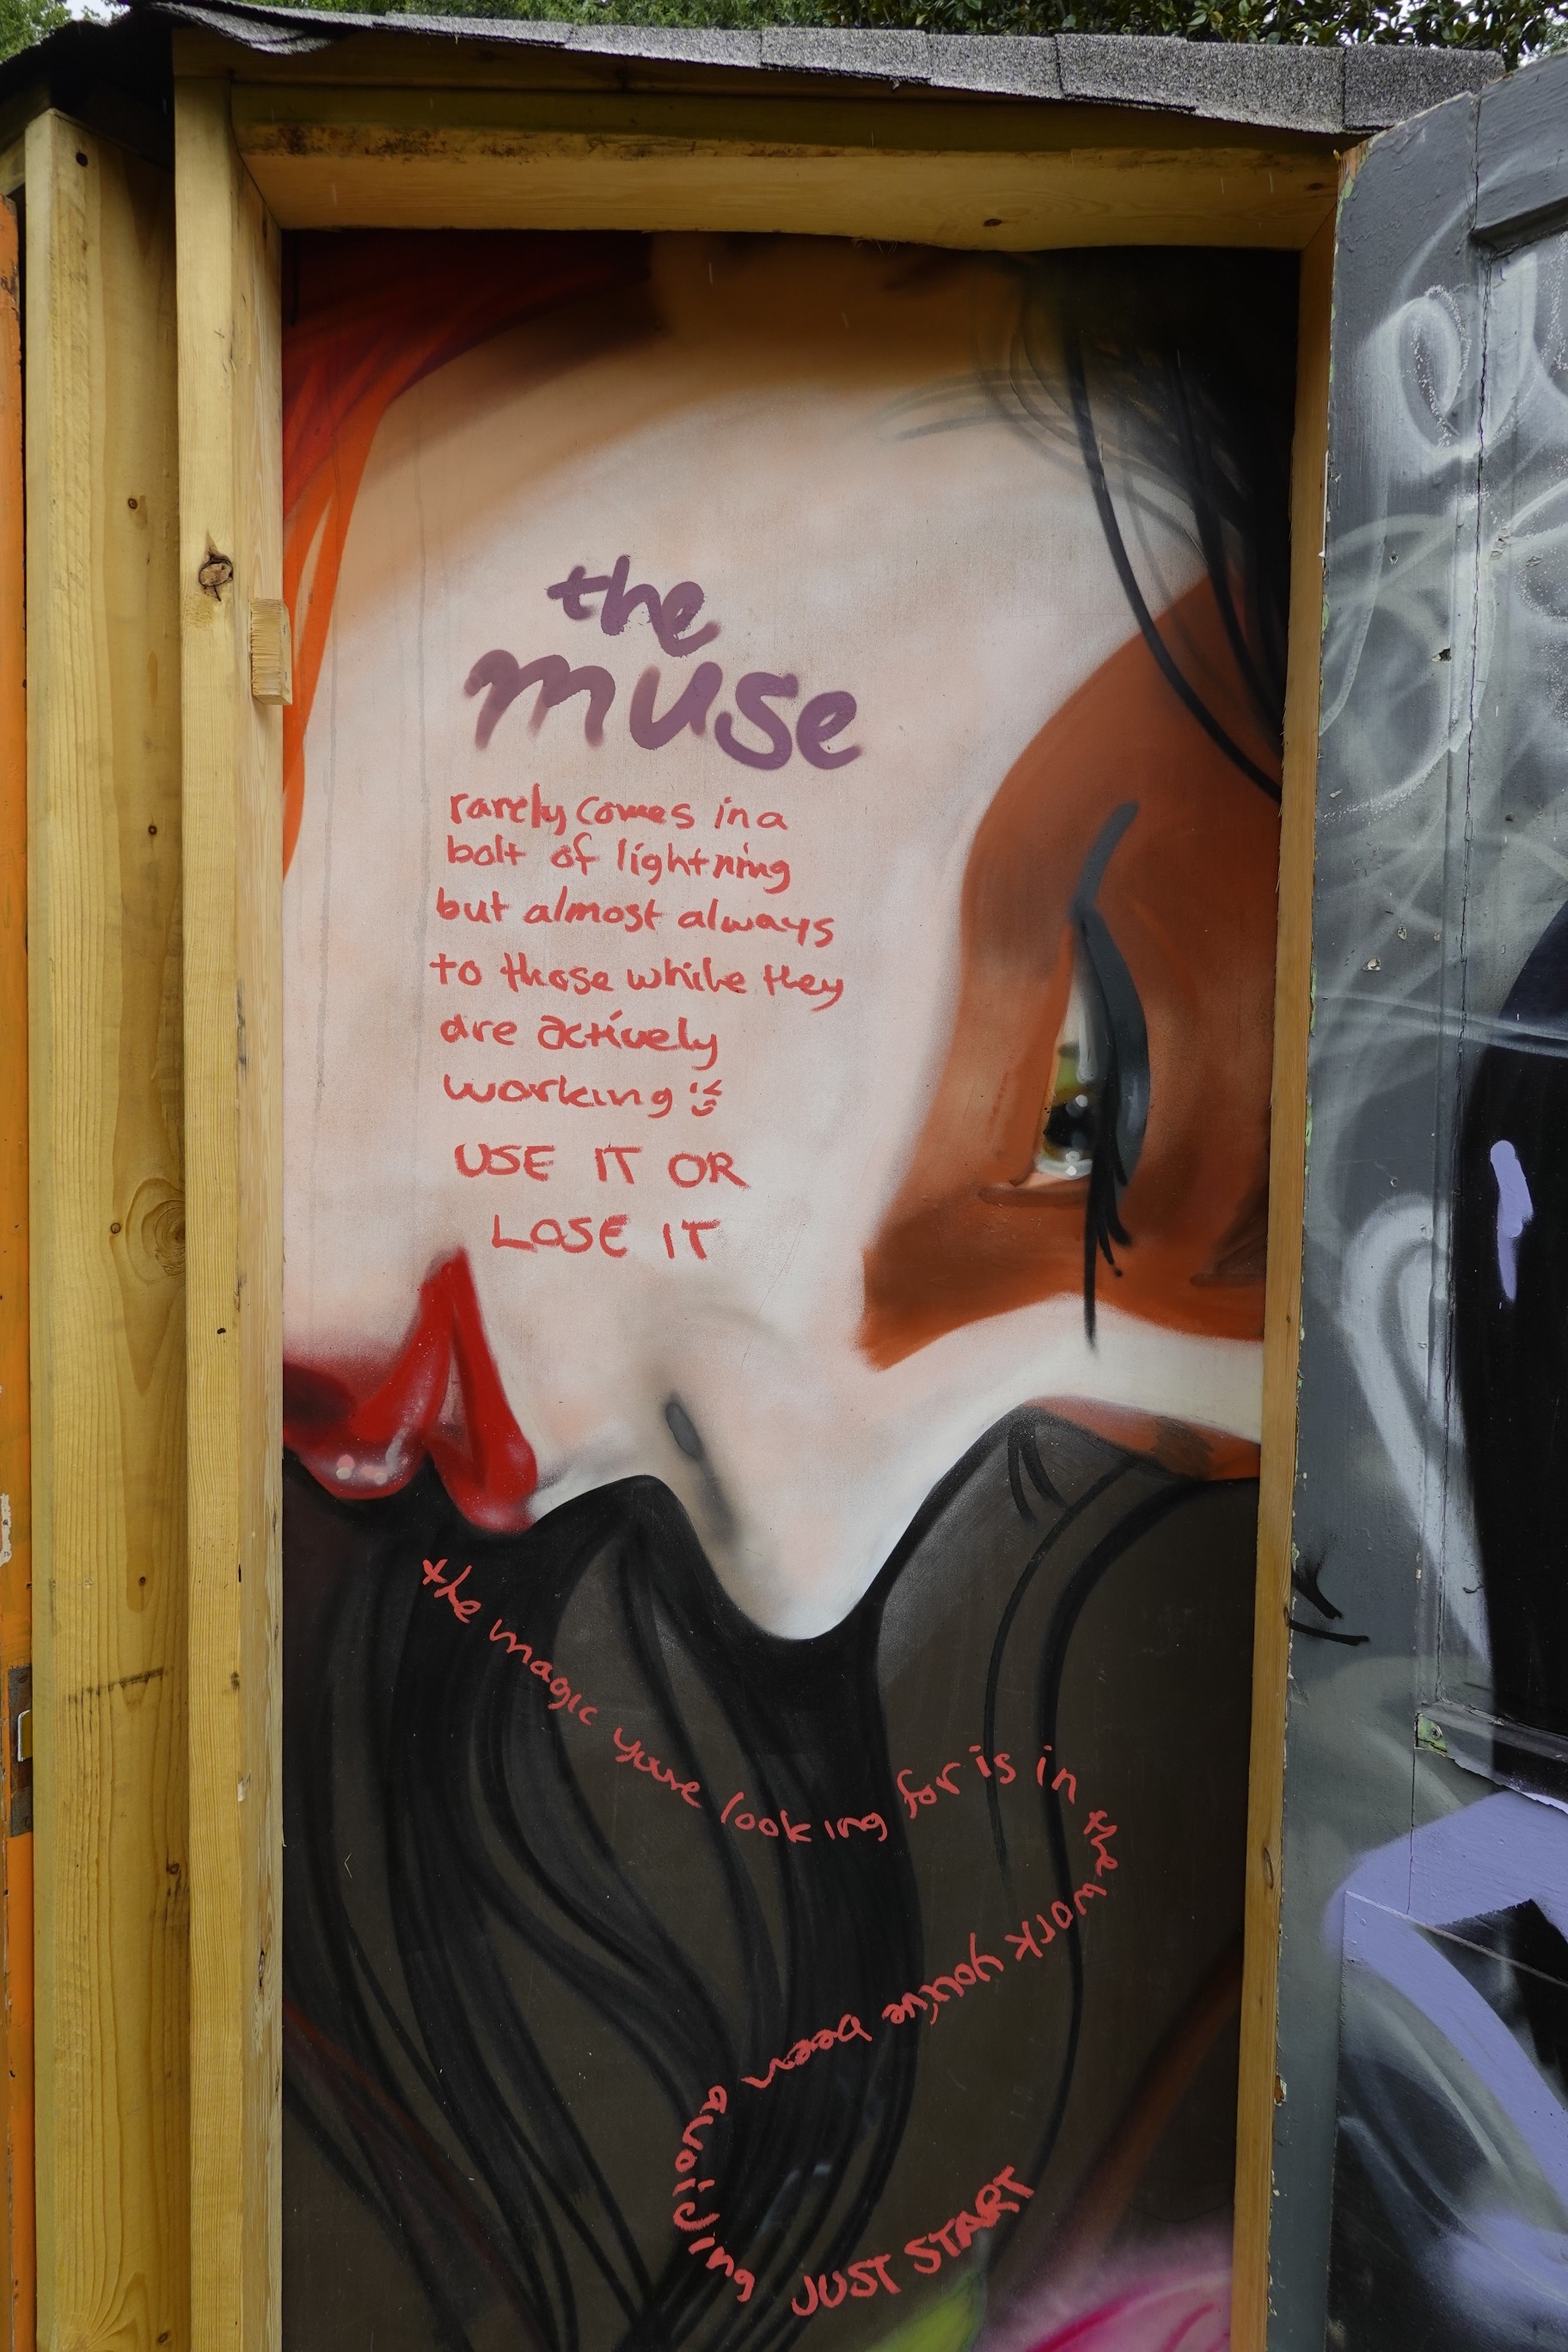 the
muse
rarely comes in a
bolt of lightning
but almost always
to those while they
are actively
working
USE IT OR
LOSE IT
the magic you're looking for is in the work you've been avoiding
JUST START